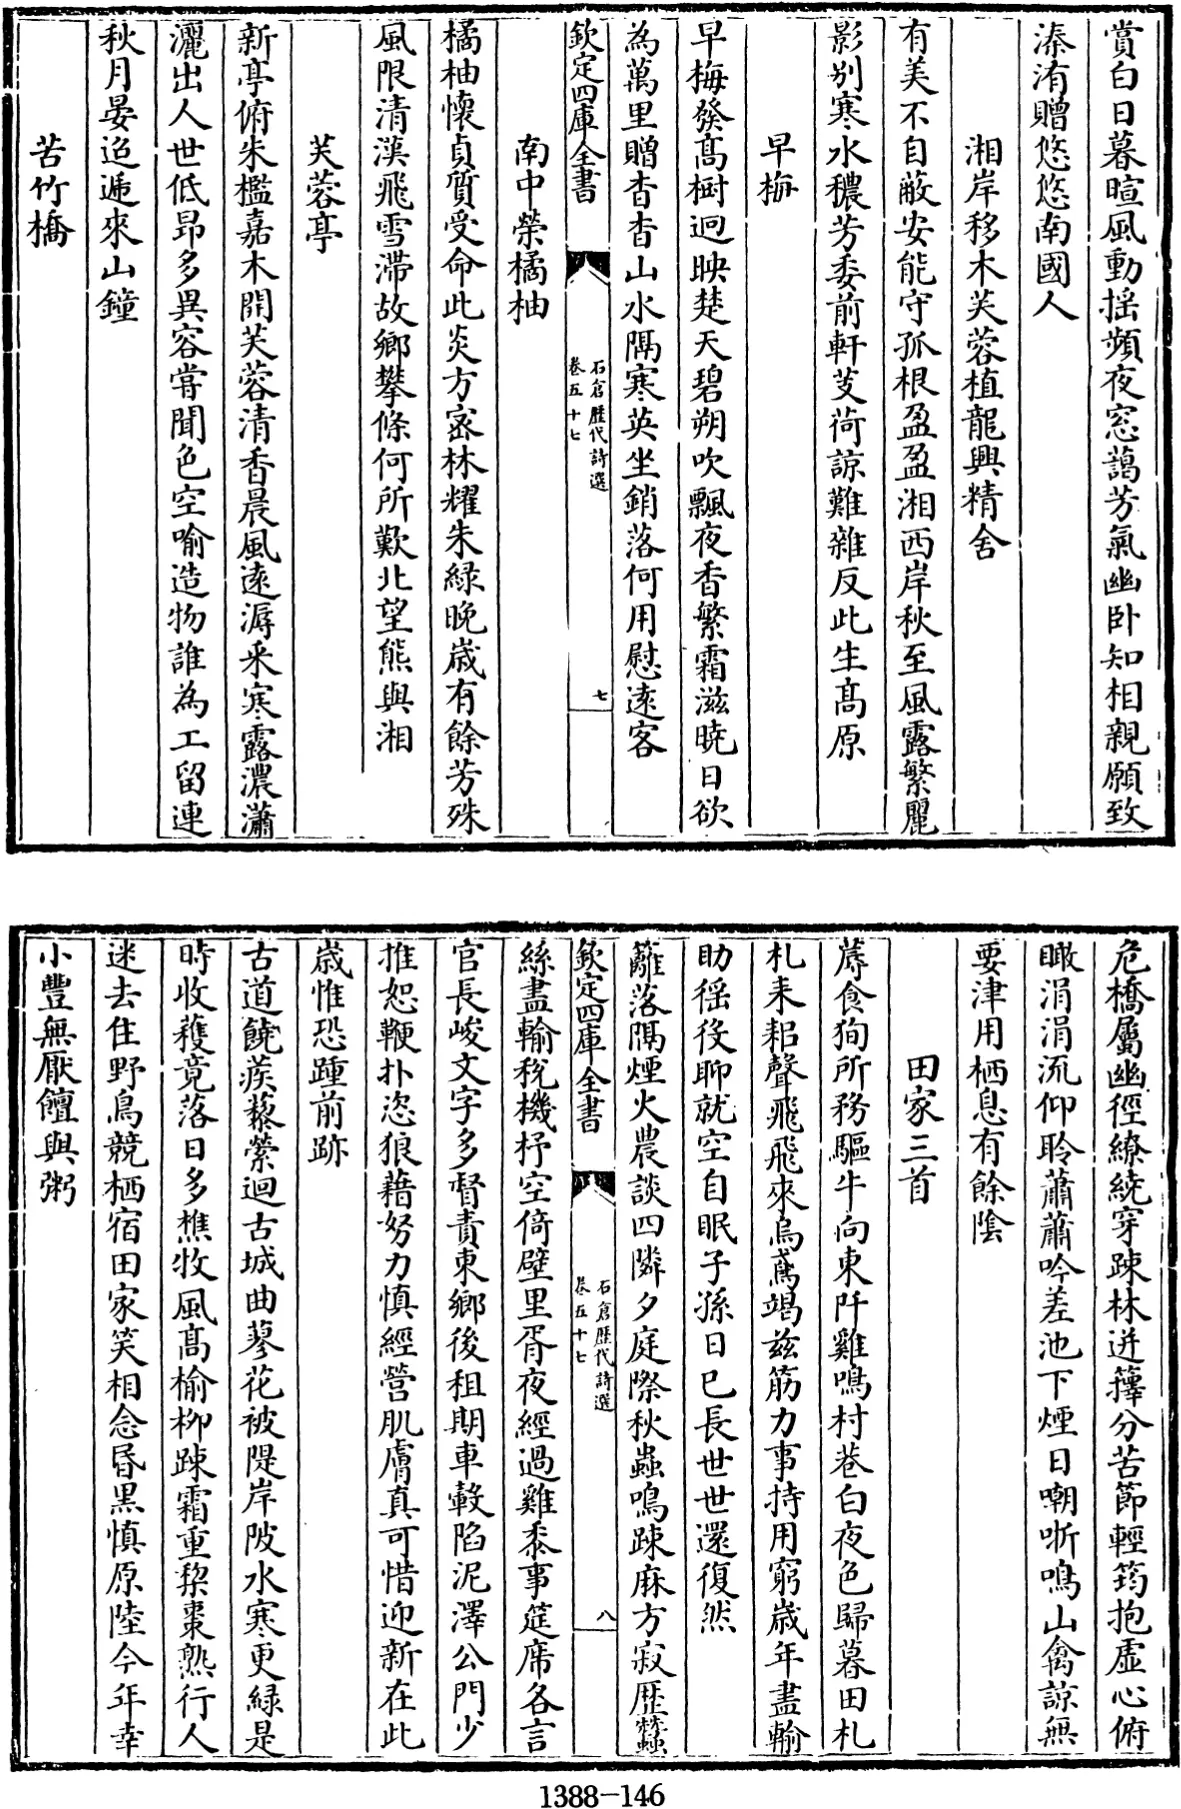 賞白日暮暄風動揺頻夜窓藹芳氣幽卧知相親願致
溱洧贈悠悠南國人
湘岸移木芙蓉植龍興精舍
有美不自蔽安能守孤根盈盈湘西岸秋至風露繁麗
影别寒水穠芳委前軒芰荷諒難雜反此生髙原
早梅
早梅發髙樹迥映楚天碧朔吹飄夜香繁霜滋曉日欲
為萬里贈杳杳山水隔寒英坐銷落何用慰逺客
欽定四庫全書
石倉歴代詩選
卷五十七
七
南中榮橘柚
橘柚懷貞質受命此炎方宻林耀朱緑晚嵗有餘芳殊
風限清漢飛雪滯故鄉攀條何所歎北望熊與湘
芙蓉亭
新亭俯朱檻嘉木開芙蓉清香晨風逺溽采寒露濃瀟
灑出人世低昻多異容嘗聞色空喻造物誰為工留連
秋月晏迢遞來山鐘
苦竹橋
危橋屬幽徑繚繞穿疎林迸籜分苦節輕筠抱虛心俯
瞰涓涓流仰聆蕭蕭吟差池下煙日嘲哳鳴山禽諒無
要津用栖息有餘隂
田家三首
蓐食狥所務驅牛向東阡雞鳴村巷白夜色歸暮田札
札耒耜聲飛飛來烏鳶竭兹筋力事持用窮嵗年盡輸
助徭役聊就空自眠子孫日已長世世還復然
籬落隔煙火農談四隣夕庭際秋蟲鳴疎麻方寂歴蠶
欽定四庫全書
石倉歴代詩選
卷五十七
八
絲盡輸税機杼空倚壁里胥夜經過雞黍事筵席各言
官長峻文字多督責東鄉後租期車轂陷泥澤公門少
推恕鞭扑恣狼藉努力慎經營肌膚真可惜迎新在此
嵗惟恐踵前跡
古道饒蒺藜縈迴古城曲蓼花被隄岸陂水寒更緑是
時收穫竟落日多樵牧風髙榆栁踈霜重棃棗熟行人
迷去住野鳥競栖宿田家笑相念昏黒慎原陸今年幸
小豐無厭饘與粥
1388-146